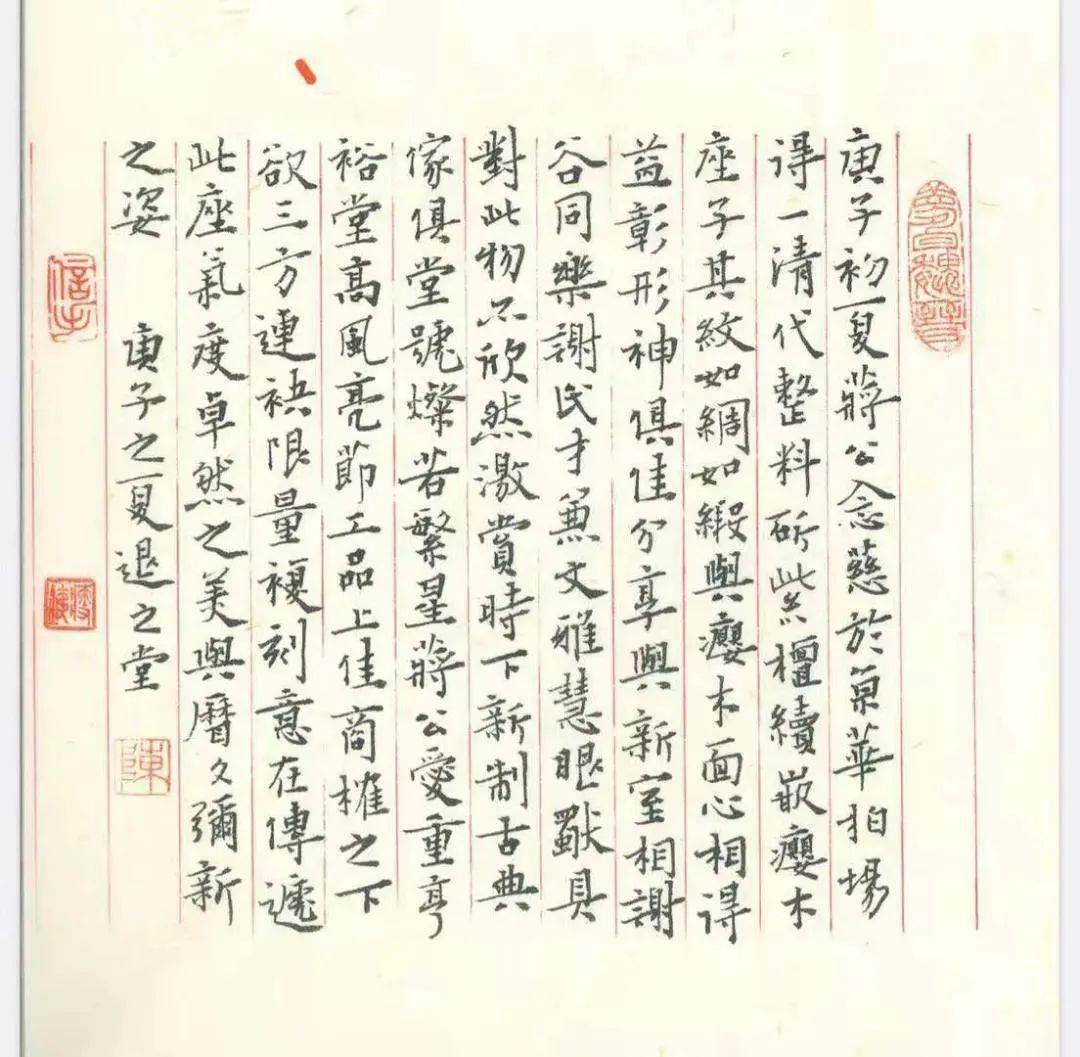 庚子初夏蔣公念慈於菓華拍場
得一清代整料斫此紫檀續嵌癭木
座子其紋如綢如緞與癭木面心相得
益彰形神俱佳分享與新室相謝
谷同樂謝民才兼文雅慧眼獸具
對此物不欣然激賞時下新制古典
傢俱堂號燦若繁星蔣公愛重亭
裕堂高風亮節工品上佳商榷之下
欲三方連袂限量複刻意在傳遞
此座氣度卓然之美與曆久彌新
之姿 庚子之夏退之堂
陳